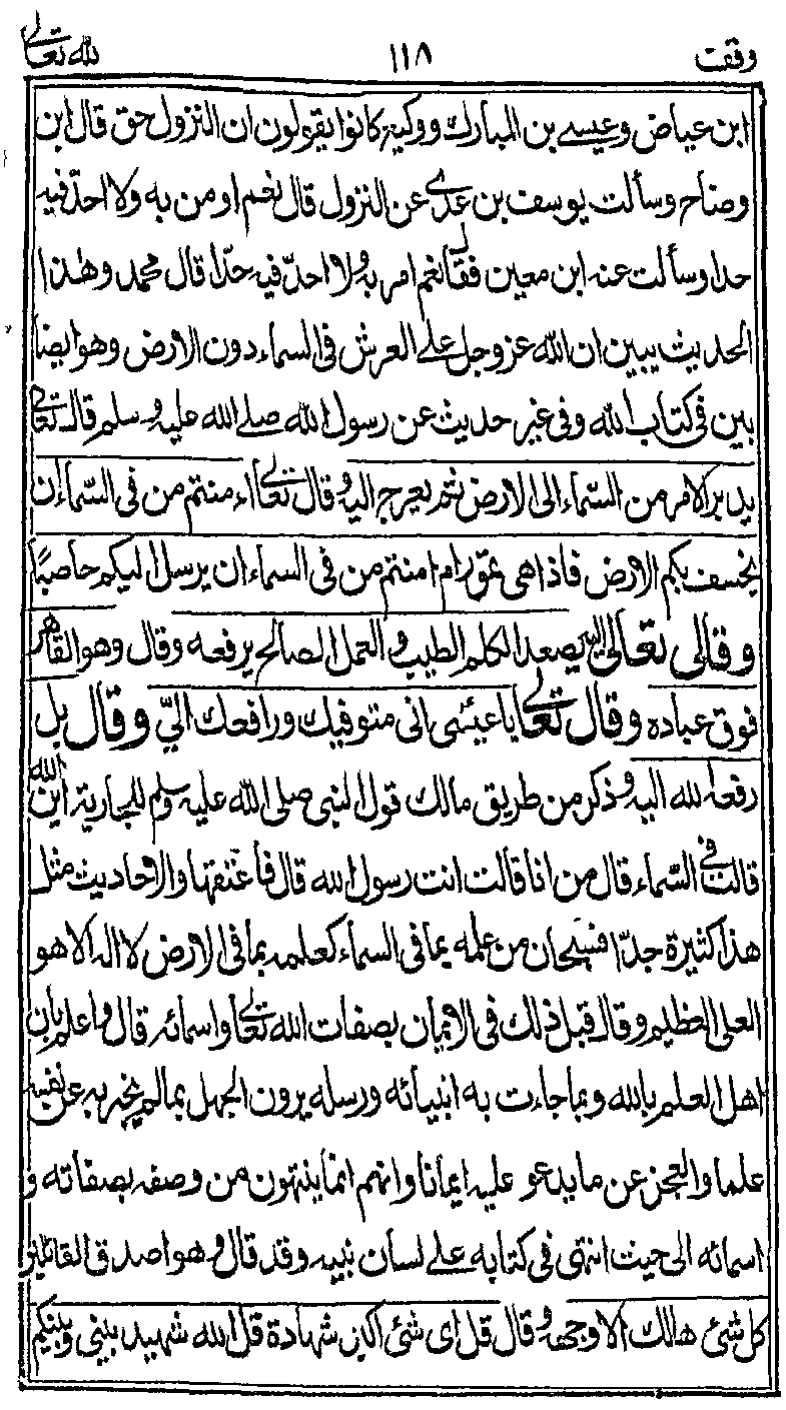 وقفت ١١٨ لله تعالى
ابن عياض وعيسے بن المبارك ووكيع كانوا يقولون ان النزول حق قال ابن
وضاح وسألت يوسف بن عدى عن النزول قال نعم اومن به ولا احدّ فيه
حدا وسألت عنه ابن معين فقال نعم اقر به ولا احدّ فيه حدّا قال محمد وهذا
الحديث يبين ان الله عز وجل علے العرش فى السماء دون الارض وهو ايضا
بين فى كتاب الله وفى غير حديث عن رسول الله صلے الله عليه وسلم قال تعالى
يدبر الامر من السّماء الى الارض ثم يعرج اليه وقال تعالى ءامنتم من فى السّماء ان
يخسف بكم الارض فاذا هى تمور ام امنتم من فى السماء ان يرسل اليكم حاصبًا
وقال تعالى اليه يصعد الكلم الطيب والعمل الصالح يرفعه وقال وهو القاهر
فوق عباده وقال تعالى يا عيسى انى متوفيك ورافعك الىّ وقال بل
رفعه الله اليه وذكر من طريق مالك قول النبى صلى الله عليه وسلم للجارية اين الله
قالت فى السّماء قال من انا قالت انت رسول الله قال فاعتقها والاحاديث مثل
هذا كثيرة جدّا فسبحان من علمه بما فى السماء كعلمه بما فى الارض لا اله الا هو
العلى العظيم وقال قبل ذلك فى الايمان بصفات الله تعالى واسمائه قال واعلم بان
اهل العلم بالله وبما جاءت به انبيائه ورسله يرون الجهل بما لم يخبر به عن نفسه
علما والعجز عن ما يدعو عليه ايمانا وانهم انما ينتهون من وصفه بصفاته و
اسمائه الى حيث انتهى فى كتابه علے لسان نبيه وقد قال وهو اصدق القائلين
كل شئ هالك الا وجهه وقال قل اى شئ اكبر شهادة قل الله شهيد بينى وبينكم